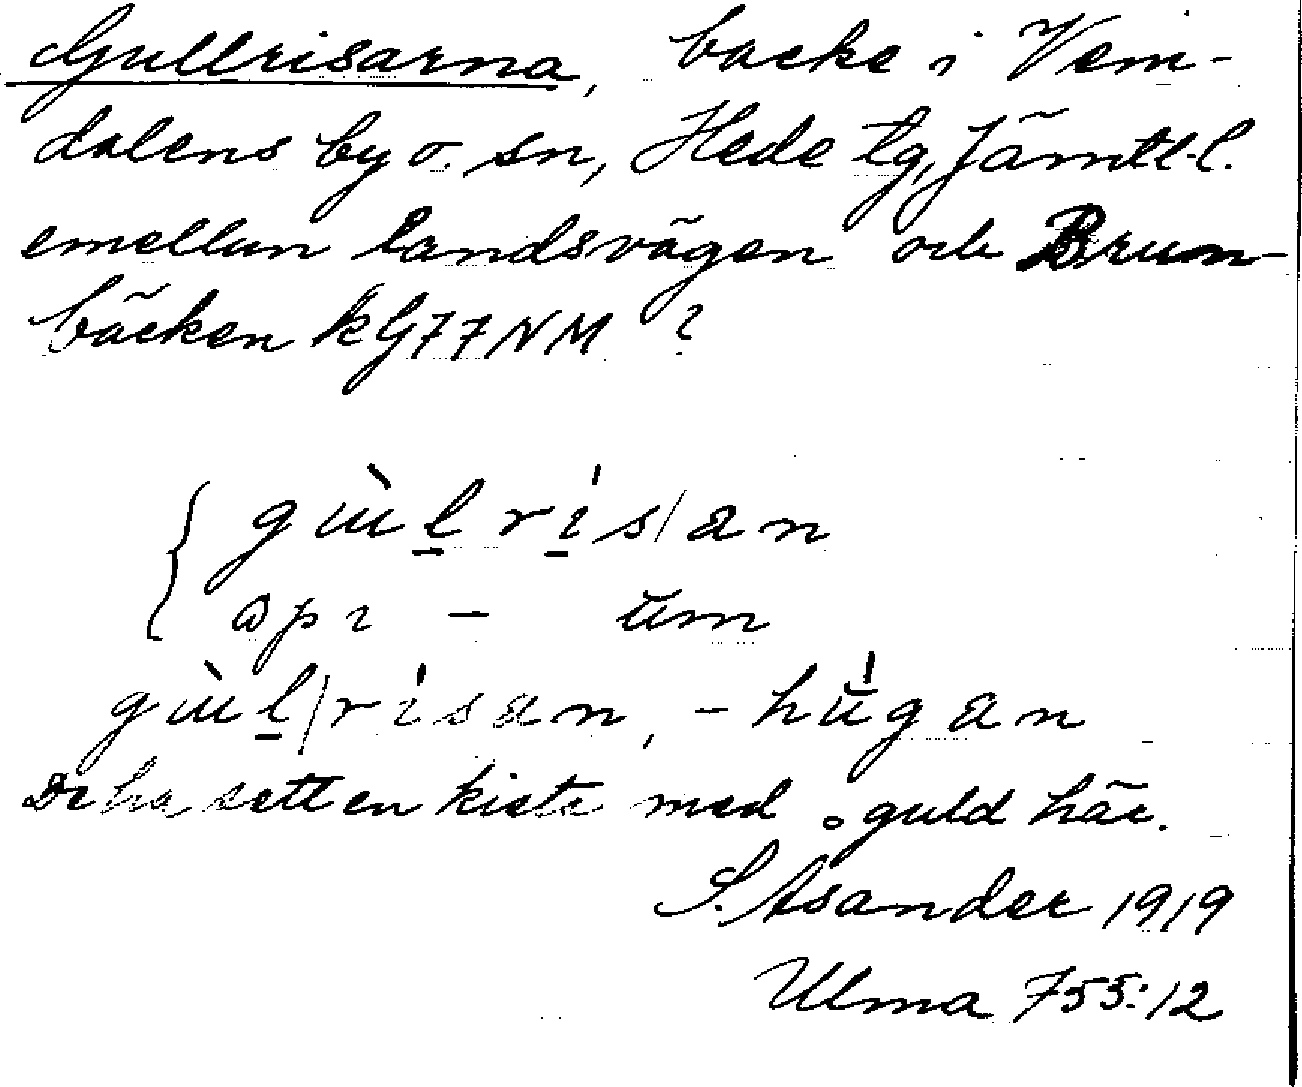 Gullrisarna, backe i Vem-
dalens by o. sn, Hede tg, Jämtl. l.
emellan landsvägen och Brun-
bäcken kG77NM ?
gùlrís/an
opı - um
gùl/rísan, -hu̍gan
De ha sett en kista med guld här.
S. Åsander 1919
Ulma 755:12